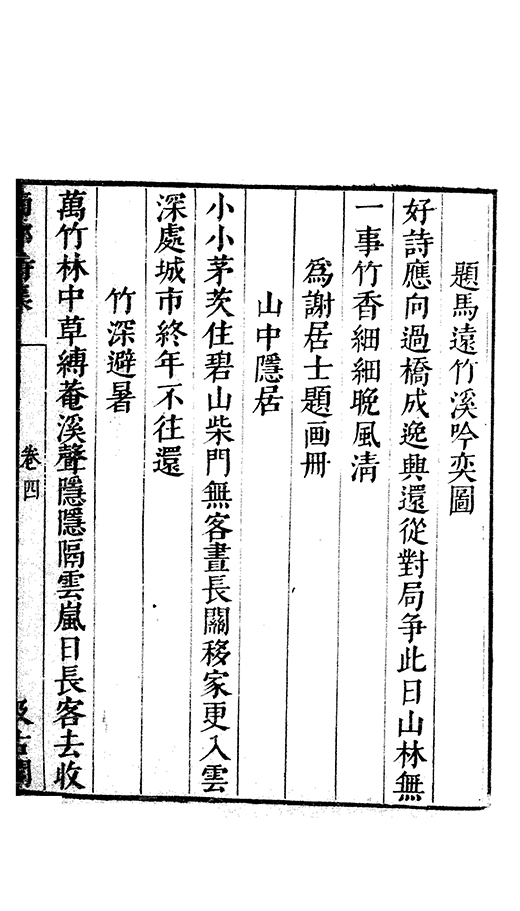 題馬遠竹溪吟奕圖
好詩應向過橋成逸興還從對局爭此日山林無
一事竹香細細晚風清
爲謝居士題画冊
山中隱居
小小茅茨住碧山柴門無客晝長關移家更入雲
深處城市終年不往還
竹深避暑
萬竹林中草縛菴溪聲隱隱隔雲嵐日長客去收
卷四